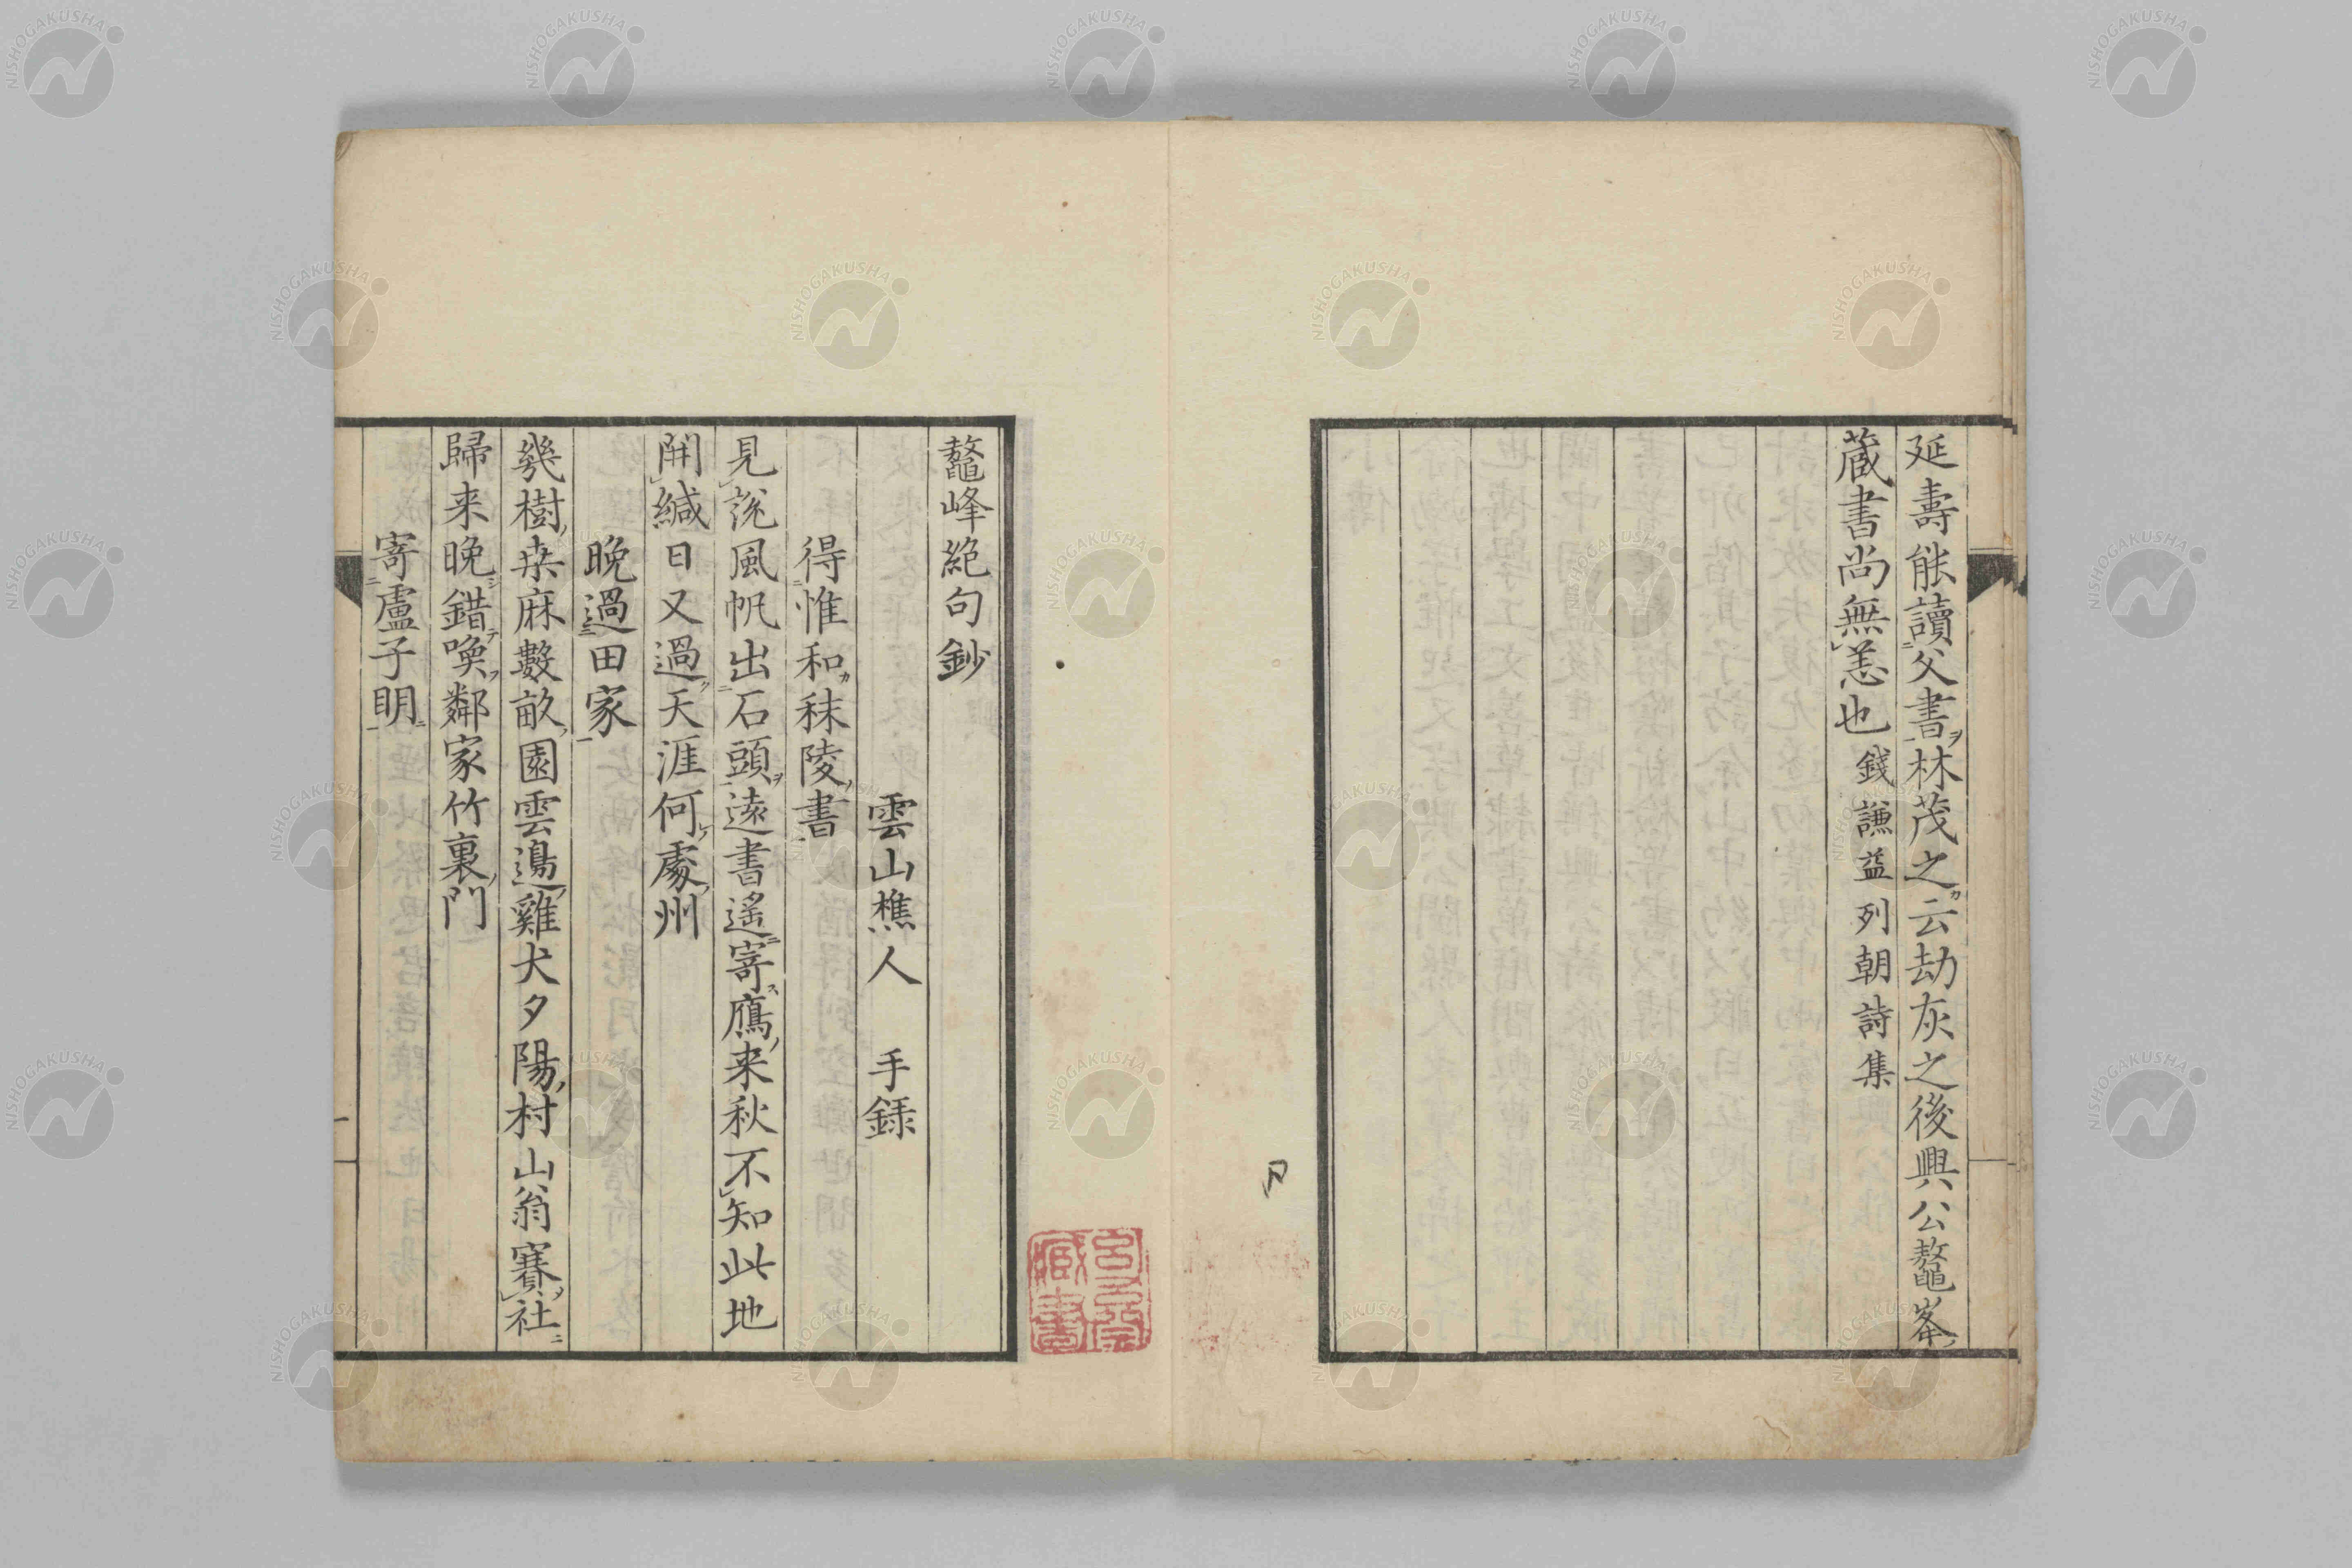 延壽能讀父書林茂之云劫灰之後興公鼇峯
藏書尚無恙也 錢謙益列朝詩集
鼇峰絕句鈔
雲山樵人 手録
得惟和秣陵書
見説風帆出石頭遠書遙寄鴈来秋不知此地
開緘日又過天涯何處州
晚過田家
幾樹桒麻數畝園雲邉雞犬夕陽村山翁賽社
歸来晚錯喚鄰家竹裏門
寄盧子明
NISHOGAKUSHA